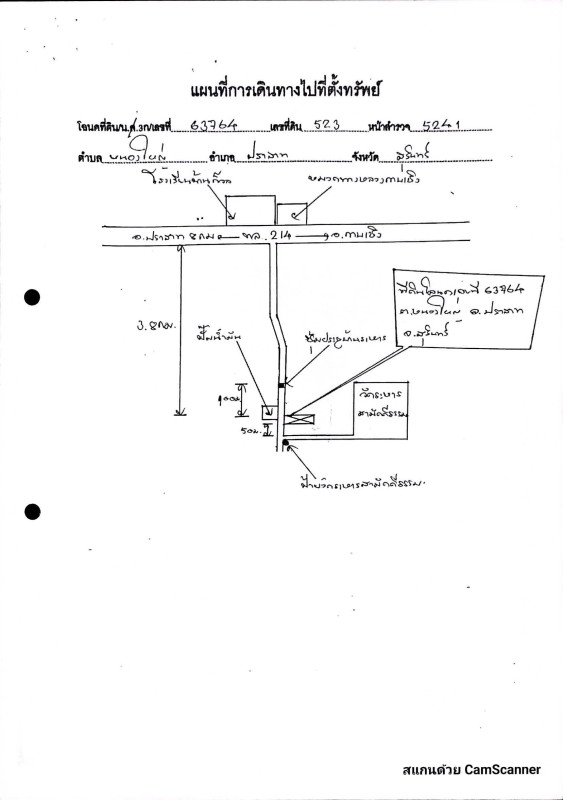 แผนที่การเดินทางไปที่ตั้งทรัพย์
โฉนดที่ดิน/น.ส.3ก/เลขที่ 63764 เลขที่ดิน 523 หน้าสำรวจ 5241
ตำบล หนองใหญ่ อำเภอ ปราสาท จังหวัด สุรินทร์
โรงเรียนบ้าน หมวดทางหลวงกาบเชิง
อ.ปราสาท 8 กม ทล. 214 อ.กาบเชิง
ที่ดินโฉนดเลขที่ 63764
ต.หนองใหญ่ อ.ปราสาท
จ.สุรินทร์
3.8 กม.
ปั๊มน้ำมัน
ซุ้มประตูบ้านระหาร
100ม.
วัดระหาร
สามัคคีธรรม
50ม.
ป้ายวัดระหารสามัคคีธรรม.
สแกนด้วย CamScanner